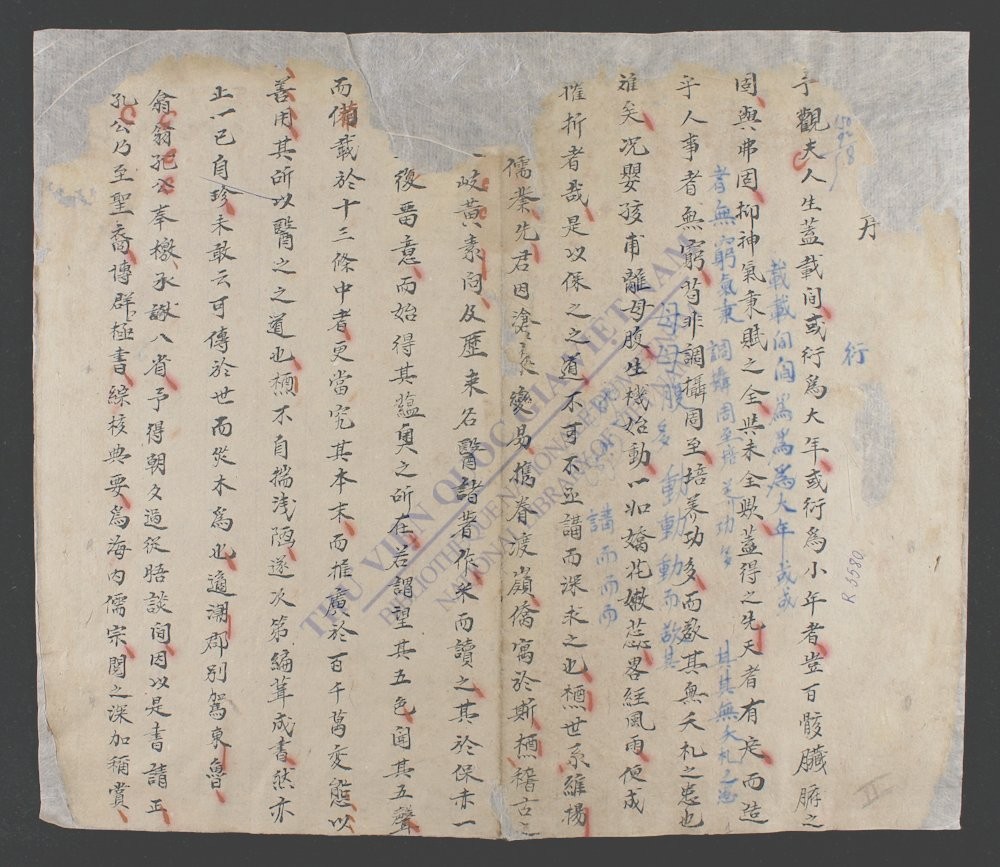 丹
予觀夫人生蓋載间或衍為大年或衍為小年者豈百骸臟腑之
固與弗固抑神氣秉賦之全與未全歟蓋得之先天者有定而造
乎人事者無窮苟非調攝周至培养功多而欲其無夭札之患也
难矣况嬰孩甫離母腹生機始動一如嬌花嫩蕊畧經風雨便成
摧折者哉是以保之之道不可不亟講而深求之也 世系維楊
儒業先君因滄 變易携眷渡嶺僑寓於斯 稽古之
岐黃素问及歷来名醫諸著作米而讀之其於保赤一
復畱意而始得其蘊奧之所在若謂望其五色闻其五聲
而備載於十三條中者更當究其本末而推廣於百千萬变態以
善用其所以醫之之道也 不自揣浅陋遂次第編葺成書然亦
止一已自珍未敢云可傳於世而災木為也適潮郡别駕東魯
翁翁孔公奉檄承 八省予得朝夕過從晤談间因以是書請正
孔公乃至聖裔傳群極書綜核典要為海内儒宗閱之深加稱賞
衍
載載间间為為為大年或或
者無窮氣秉調講周至培养功多 其其無夭札之患
母母腹多動動動而欲其
講而而而
R.5580
THƯ VIỆN QUỐC GIA VIỆT NAM
BIBLIOTHÈQUE NATIONALE DU VIETNAM
NATIONAL LIBRARY OF VIETNAM